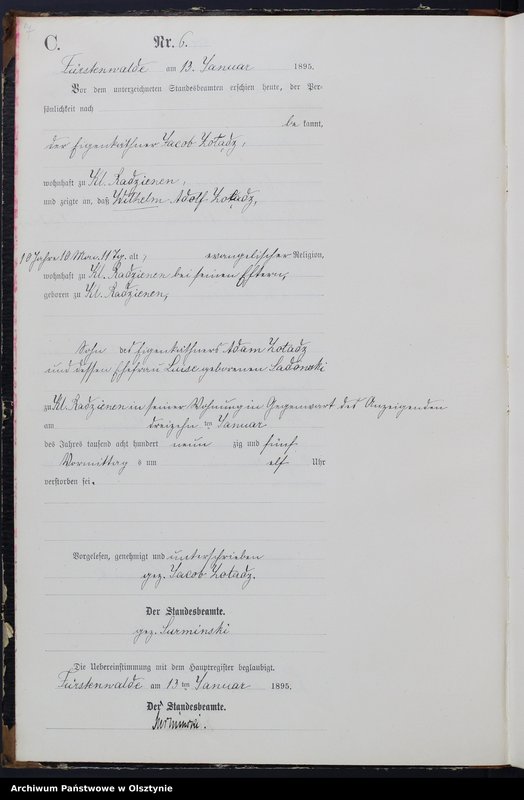 C. Nr. 6.
Fürstenwalde am 13. Januar 1895.
Vor dem unterzeichneten Standesbeamten erschien heute, der Per-
sönlichkeit nach
be kannt,
der Eigenkäthner Jacob Zotadz,
wohnhaft zu Kl. Radzienen,
und zeigte an, daß Wilhelm Adolf Zotadz,
19 Jahre 10 Mon. 11 Tg. alt, evangelischer Religion,
wohnhaft zu Kl. Radzienen bei seinen Eltern,
geboren zu Kl. Radzienen,
Sohn des Eigenkäthners Adam Zotadz
und dessen Ehefrau Luise geborenen Sadowski
zu Kl. Radzienen in seiner Wohnung in Gegenwart des Anzeigenden
am dreizehn ten Januar
des Jahres tausend acht hundert neun zig und fünf
Vormittag s um elf Uhr
verstorben sei.
Vorgelesen, genehmigt und unterschrieben
gez. Jacob Zotadz.
Der Standesbeamte.
gez. Surminski
Die Uebereinstimmung mit dem Hauptregister beglaubigt.
Fürstenwalde am 13 ten Januar 1895.
Der Standesbeamte.
Surminski.
Archiwum Państwowe w Olsztynie